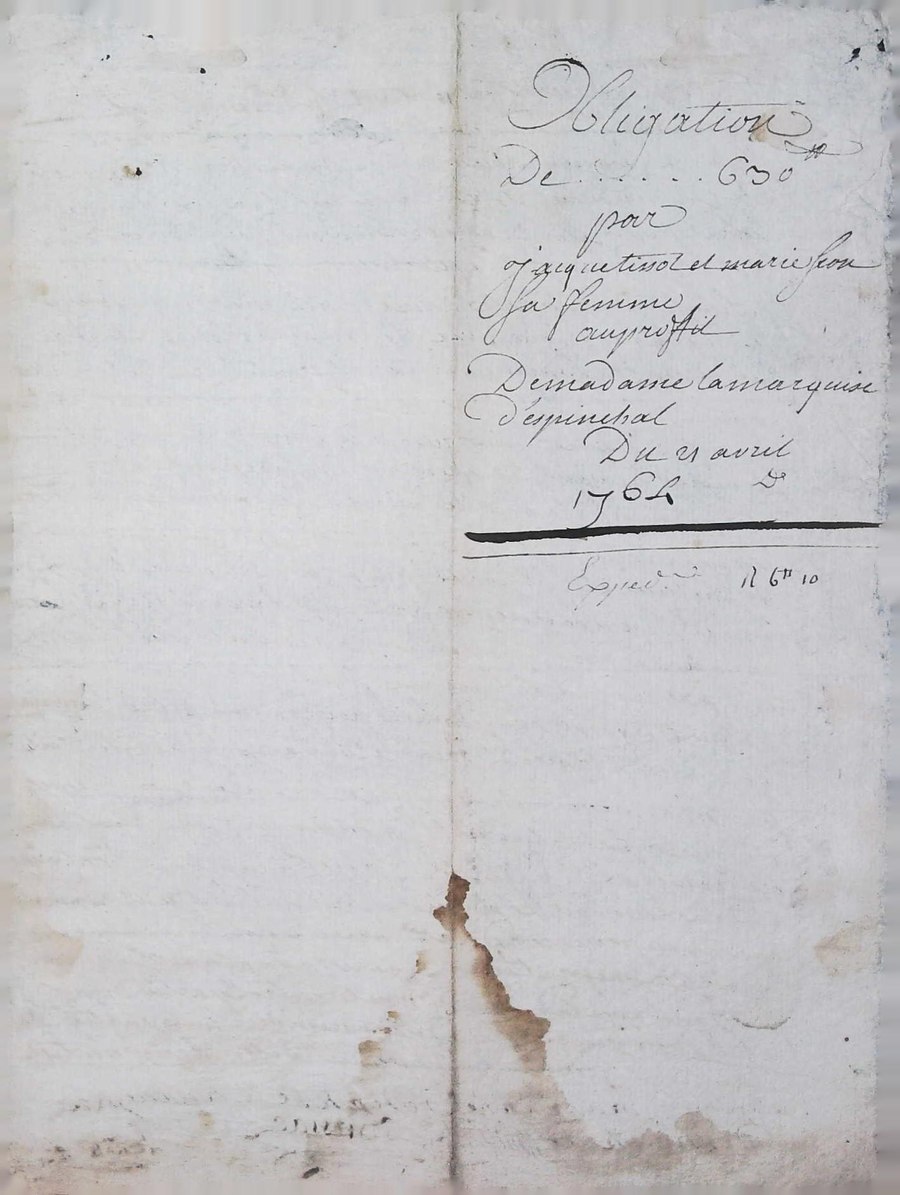 Obligation
De ...... 630 ₶
par
Jacque tissot et marie
Sa femme
au proffit
De madame la marquise
d'espinchal
Du 21 avril
1764
Exped.on R 6 ₶ 10